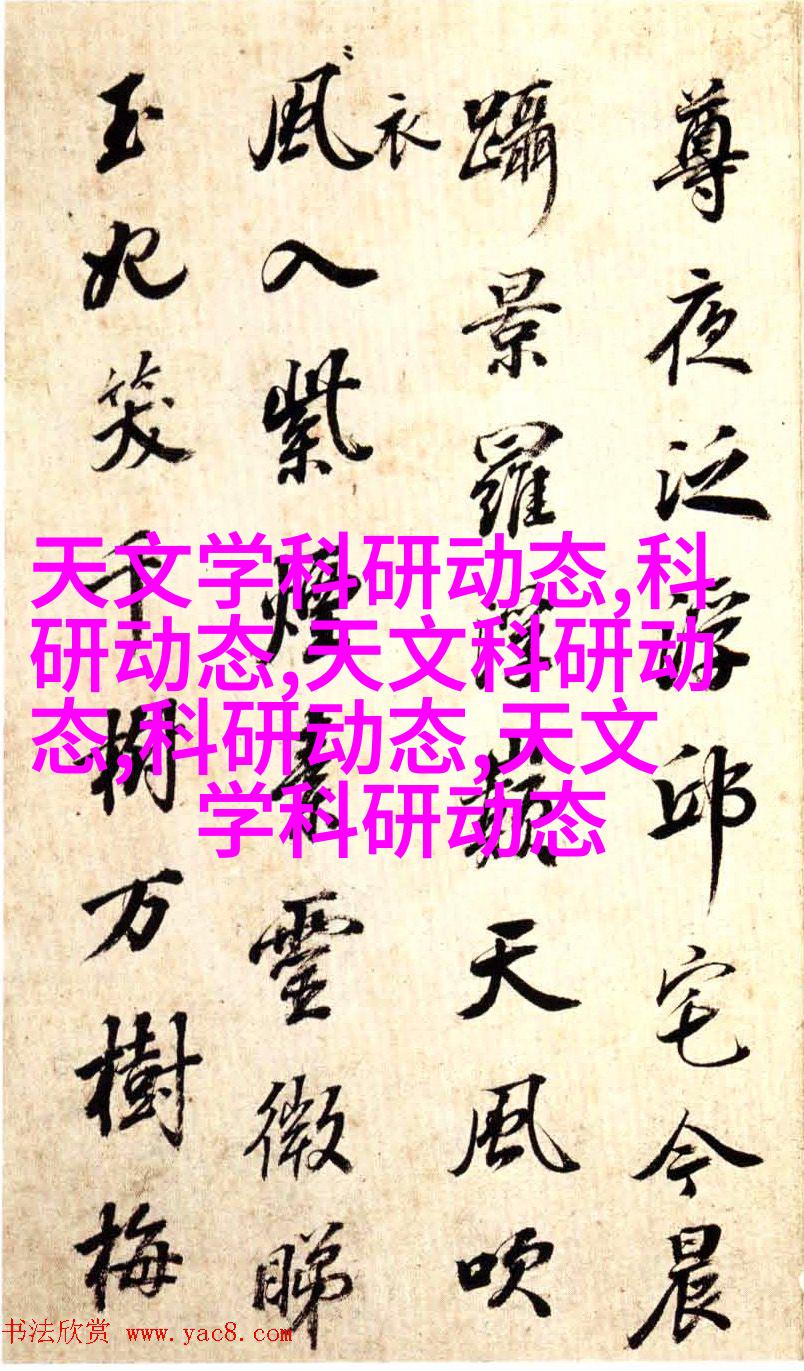 尊夜泛浮邱宅今晨
躡景羅浮巔天風吹
衣
風入紫煙素靈微睇
玉妃笑千樹万樹梅
天文学科研动态,科
研动态,天文科研动
态,科研动态,天文
学科研动态
书法欣赏 www.yac8.com